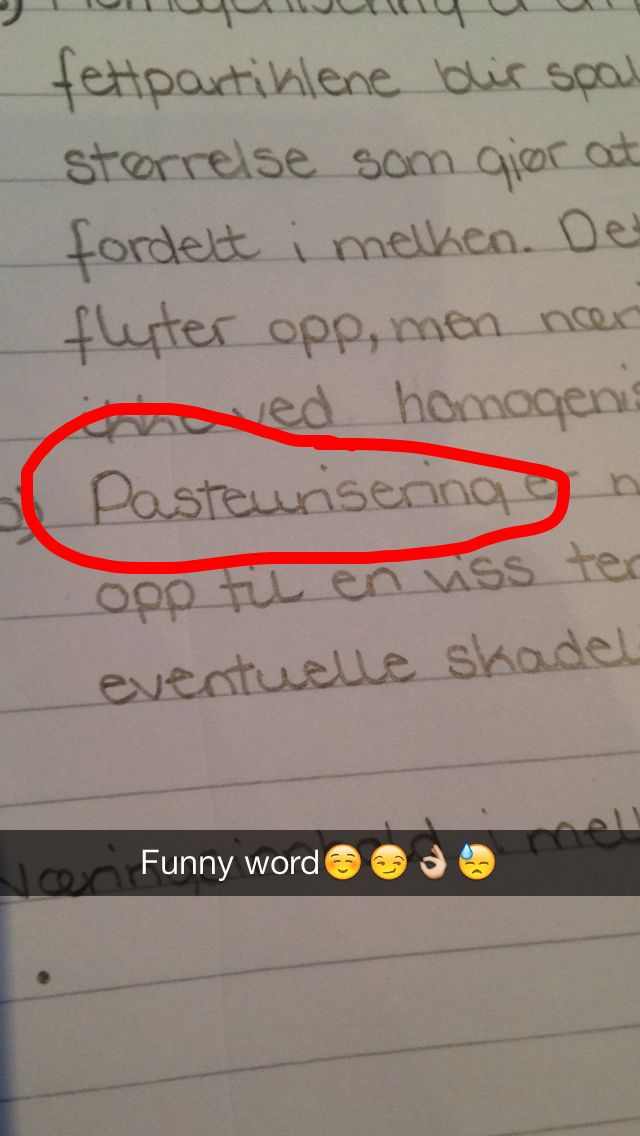 fettpartiklene blir spal
størrelse som gjør at
fordelt i melken. Det
flyter opp, men nær
ved homogenis
b) Pasteurisering er n
opp til en viss tem
eventuelle skadel
Næringsinnhold i mel
Funny word☺️😏👌😓